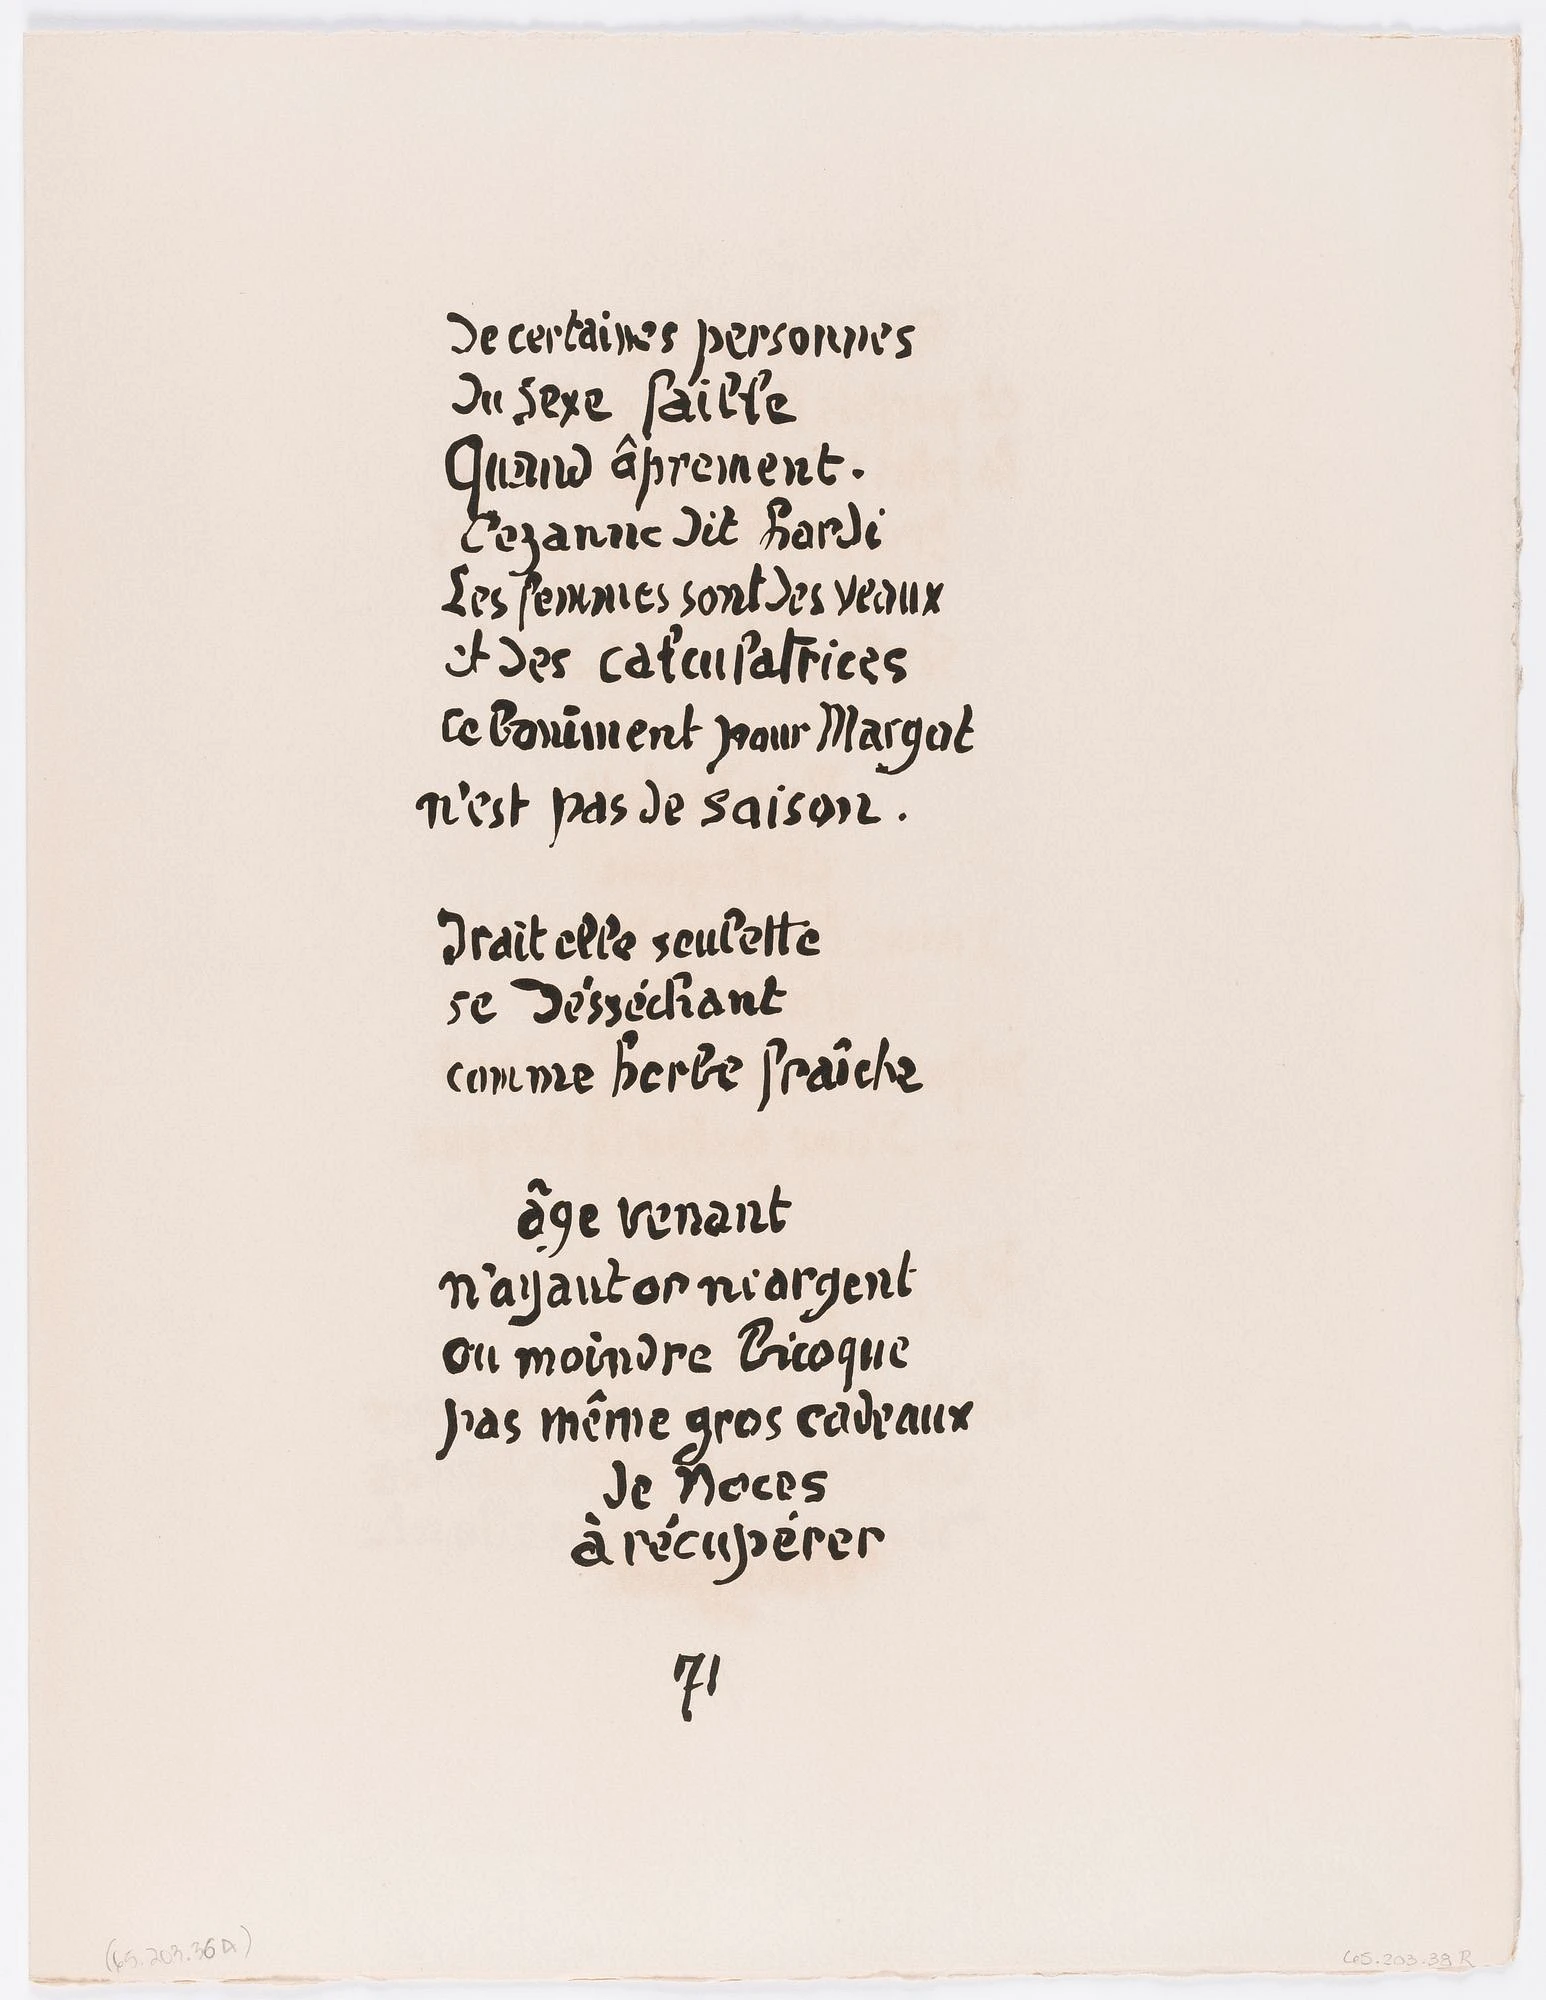 De certaines personnes
Du Sexe faible
Quand âprement.
Cezanne dit hardi
Les femmes sont des veaux
et des calculatrices
ce boniment pour Margot
n'est pas de saison.
Irait elle seulette
se désséchant
comme herbe fraîche
âge venant
n'ayant or ni argent
ou moindre bicoque
pas même gros cadeaux
de Noces
à récupérer
71
(65.203.36A)
65.203.38 R